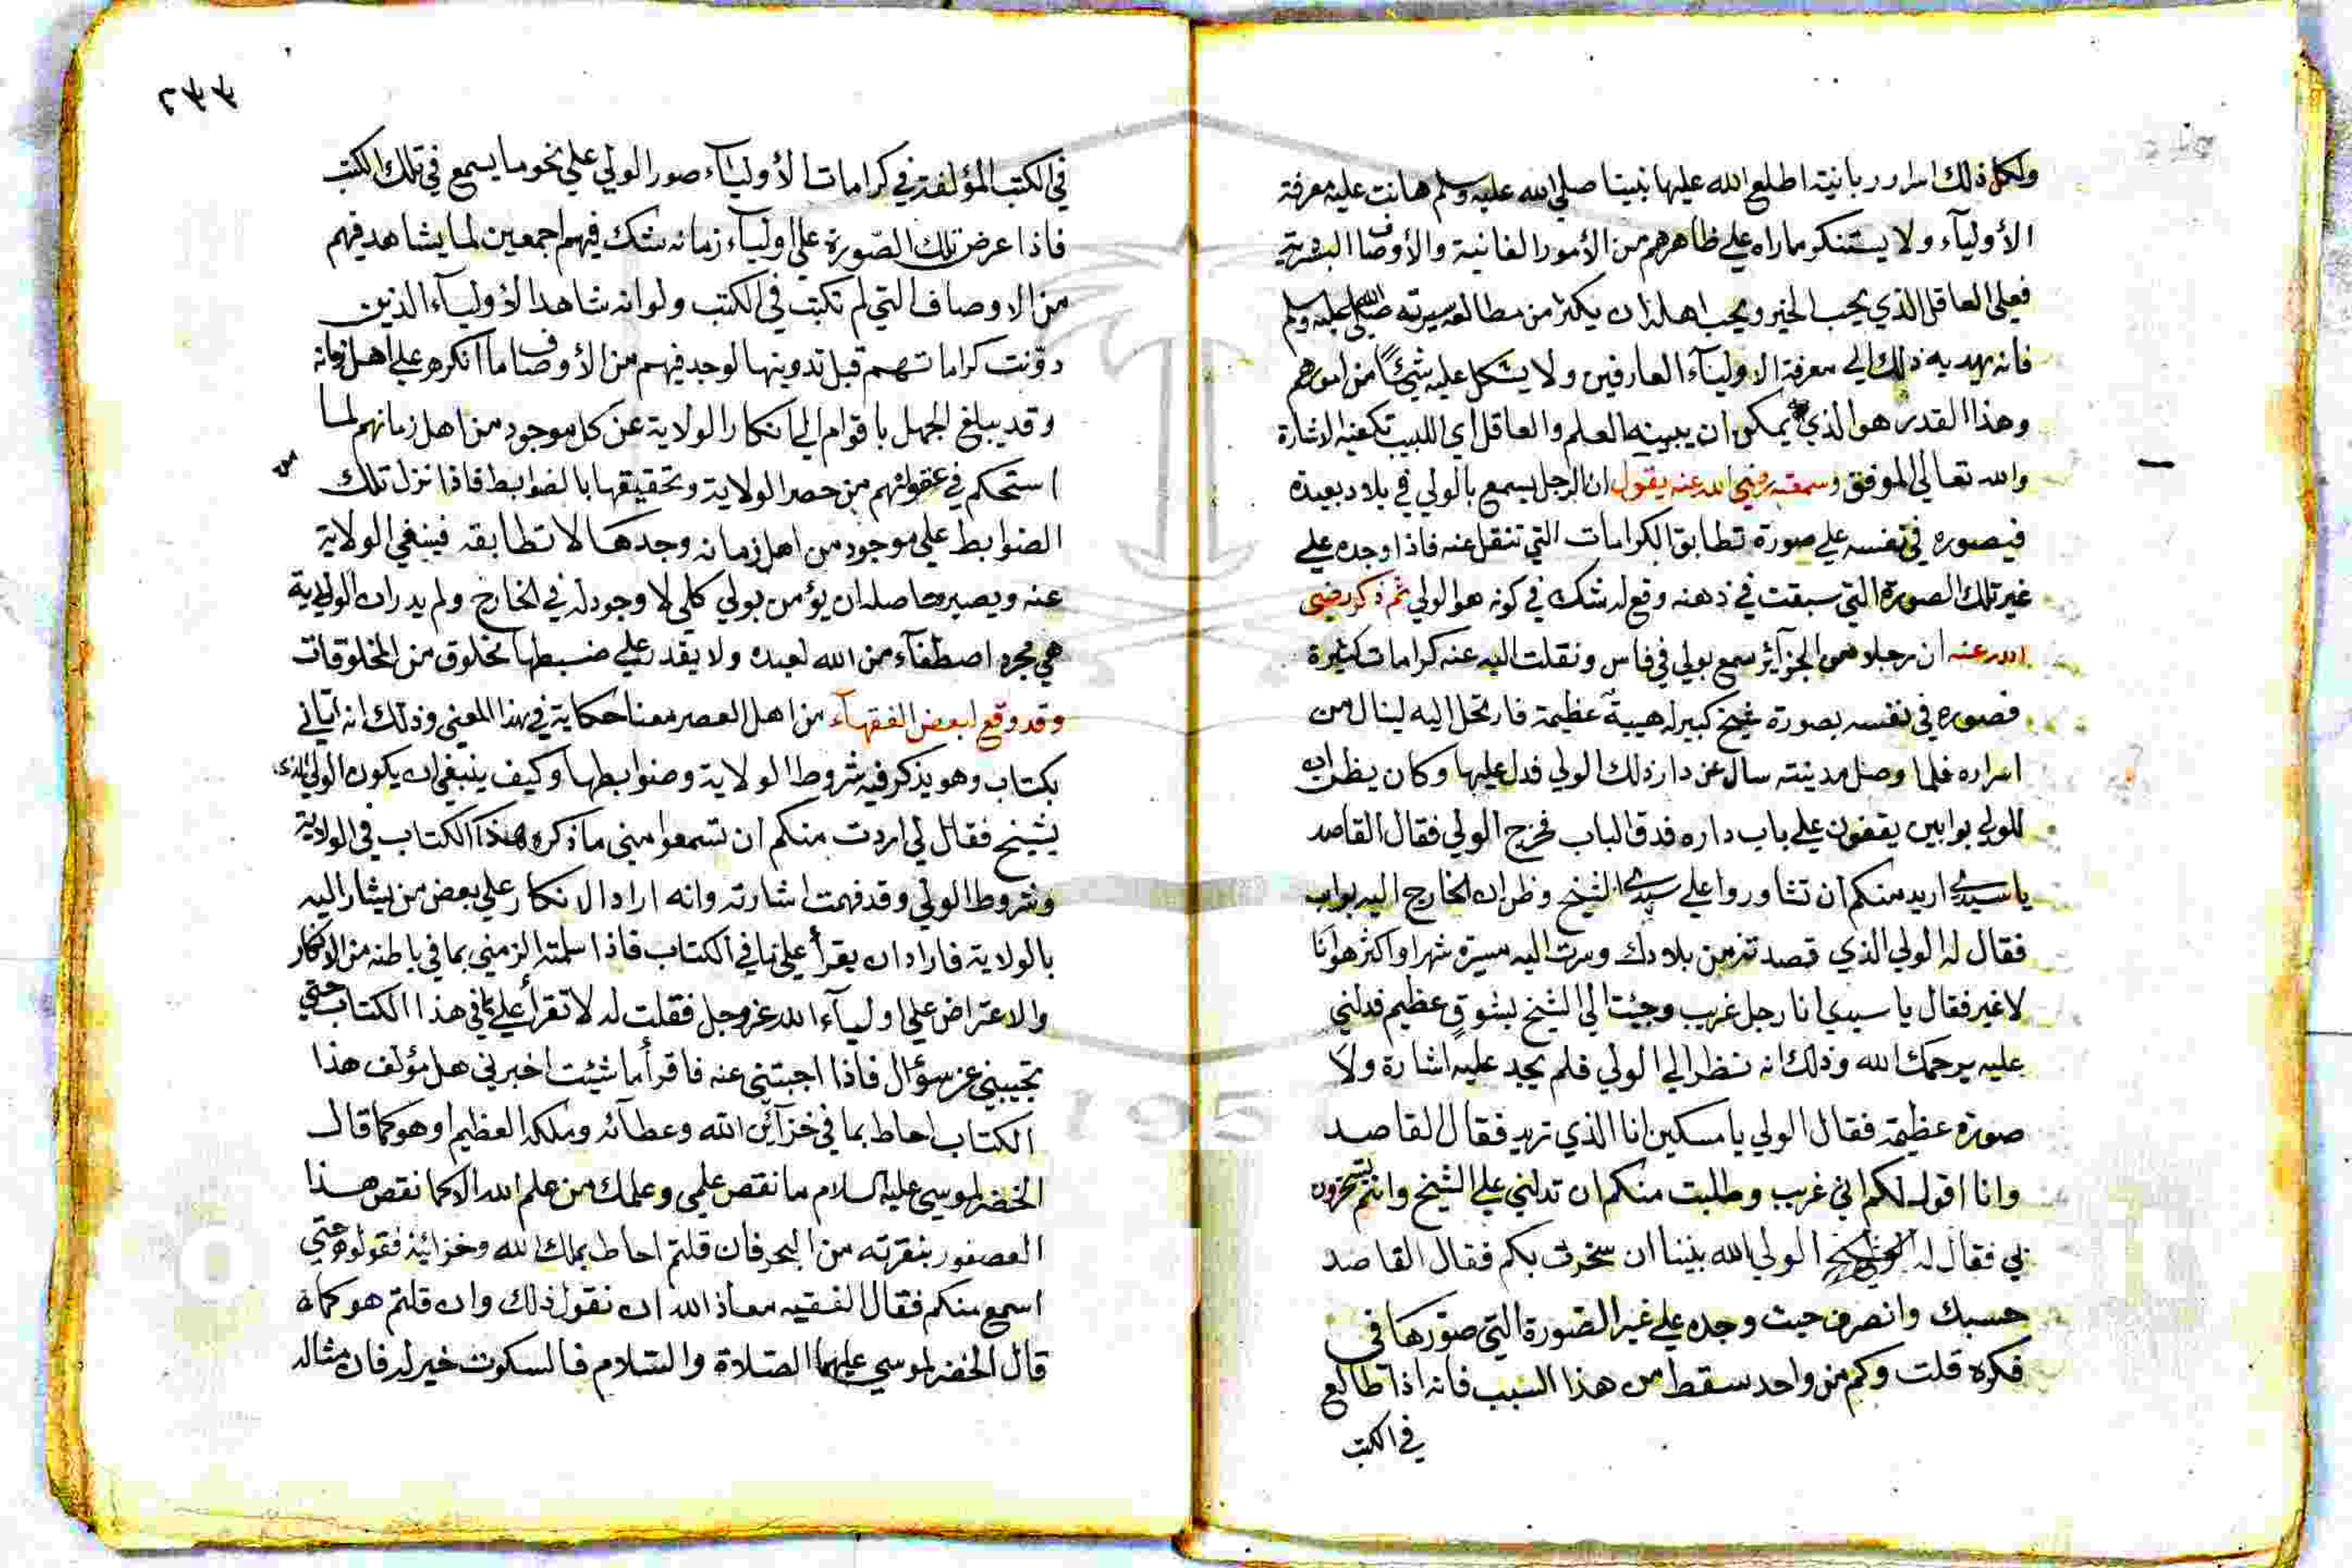 ولكل ذلك اسرار ربانية اطلع الله عليها نبينا صلى الله عليه وسلم هانت عليه معرفة
الأوليآء ولا يستنكر ماراه علي ظاهرهم من الأمور الفانية والأوصاف البشرية
فعلى العاقل الذي يحب الخير ويحب اهله ان يكثر من مطالعة سيرته صلى الله عليه وسلم
فانه يهديه ذلك الي معرفة الاوليآء العارفين ولا يشكل عليه شئ من امورهم
وهذا القدر هو الذي يمكن ان يبينه العلم والعاقل اي اللبيب تكفيه الاشارة
والله تعالى الموفق وسمعته رضي الله عنه يقول ان الرجل يسمع بالولي في بلاد بعيدة
فيصوره في نفسه علي صورة تطابق الكرامات التي تنقل عنه فاذا وجده علي
غير تلك الصورة التي سبقت في ذهنه وقع له شك في كونه هو الولي ثم ذكر رضي
الله عنه ان رجلا من الجزآئر سمع بولي في فاس ونقلت اليه عنه كرامات كثيرة
فصوره في نفسه بصورة شيخ كبير له هيبة عظيمة فارتحل اليه لينال من
اسراره فلما وصل مدينته سال عن دار ذلك الولي فدل عليها وكان يظن ان
للولي بوابين يقفون علي باب داره فدق الباب فخرج الولي فقال القاصد
يا سيدي اريد منكم ان تشاوروا علي سيدي الشيخ وظن ان الخارج اليه بواب
فقال له الولي الذي قصدته من بلادك وسرت اليه مسيرة شهر او اكثر هو انا
لا غير فقال يا سيدي انا رجل غريب وجئت الي الشيخ بشوق عظيم فدلني
عليه يرحمك الله وذلك انه نظر الي الولي فلم يجد عليه اشارة ولا
صورة عظيمة فقال الولي يا مسكين انا الذي تريد فقال القاصد
وانا اقول لكم اني غريب وطلبت منكم ان تدلني علي الشيخ وانتم تسخرون
بي فقال له الولي الله بيننا ان سخرت بكم فقال القاصد
حسبك وانصرف حيث وجده علي غير الصورة التي صورها في
فكره قلت وكم من واحد سقط من هذا السبب فانه اذا طالع
في الكتب
٢٣٣
في الكتب المؤلفة في كرامات الأوليآء صور الولي علي نحو ما يسمع في تلك الكتب
فاذا عرض تلك الصورة علي اوليآء زمانه شك فيهم اجمعين لما يشاهد فيهم
من الاوصاف التي لم تكتب في الكتب ولو انه شاهد الأوليآء الذين
دوّنت كراماتهم قبل تدوينها لوجد فيهم من الأوصاف ما انكره علي اهل زمانه
وقد يبلغ الجهل باقوام الي انكار الولاية عن كل موجود من اهل زمانهم لما
استحكم في عقولهم من حصر الولاية وتحقيقها بالضوابط فاذا نزل تلك
الضوابط علي موجود من اهل زمانه وجدها لا تطابقه فينفي الولاية
عنه ويصير حاصله ان يؤمن بولي كلي لا وجود له في الخارج ولم يدر ان الولاية
هي مجرد اصطفآء من الله لعبده ولا يقدر علي ضبطها مخلوق من المخلوقات
وقد وقع لبعض الفقهآء من اهل العصر معنا حكاية في هذا المعني وذلك انه اتاني
بكتاب وهو يذكر فيه شروط الولاية وضوابطها وكيف ينبغي ان يكون الولي الذي
يشيخ فقال لي اردت منكم ان تسمعوا مني ما ذكره هذا الكتاب في الولاية
وشروط الولي وقد فهمت اشارته وانه اراد الانكار علي بعض من يشار اليه
بالولاية فاراد ان يقرأ علي ما في الكتاب فاذا سلمته الزمني بما في باطنه من الانكار
والاعتراض علي اوليآء الله عز وجل فقلت له لا تقرأ علي ما في هذا الكتاب حتي
تجيبني عن سؤال فاذا اجبتني عنه فاقرأ ما شئت اخبرني هل مؤلف هذا
الكتاب احاط بما في خزآئن الله وعطآئه وملكه العظيم او هو كما قال
الخضر لموسي عليه السلام ما نقص علمي وعلمك من علم الله الا كما نقص هذا
العصفور بنقرته من البحر فان قلتم احاط بملك الله وخزائنه فقولوه حتي
اسمع منكم فقال الفقيه معاذ الله ان نقول ذلك وان قلتم هو كما
قال الخضر لموسي عليهما الصلاة والسلام فالسكوت خير له فان مثاله